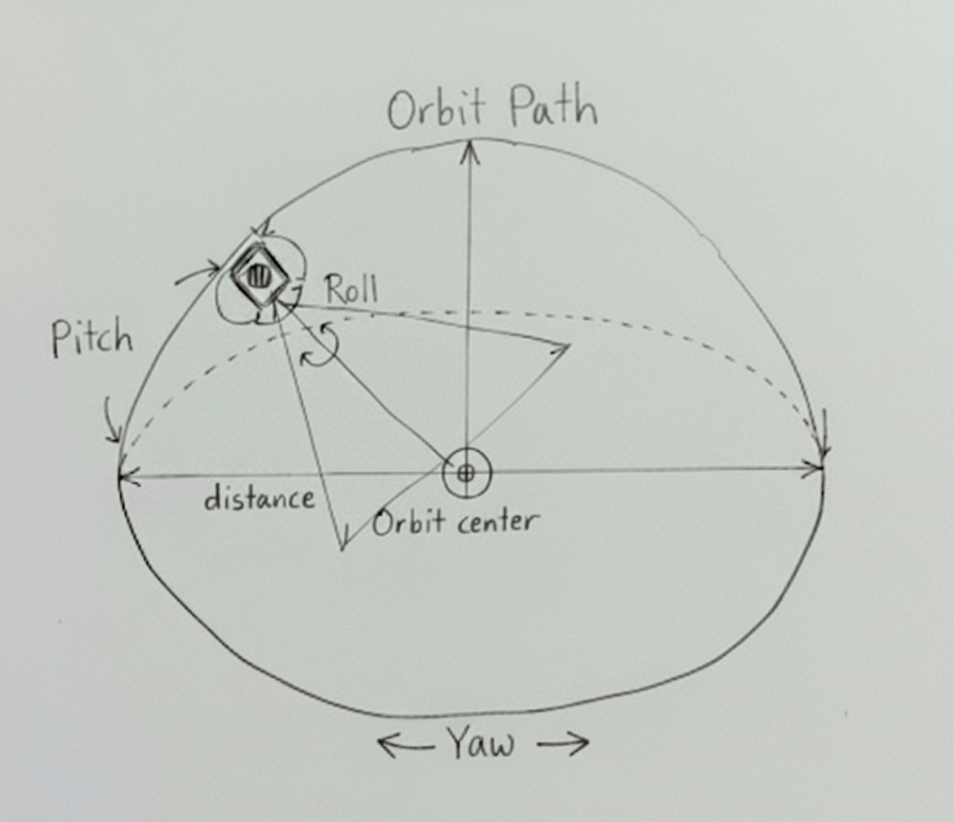 Orbit Path
Roll
Pitch
distance
Orbit center
Yaw